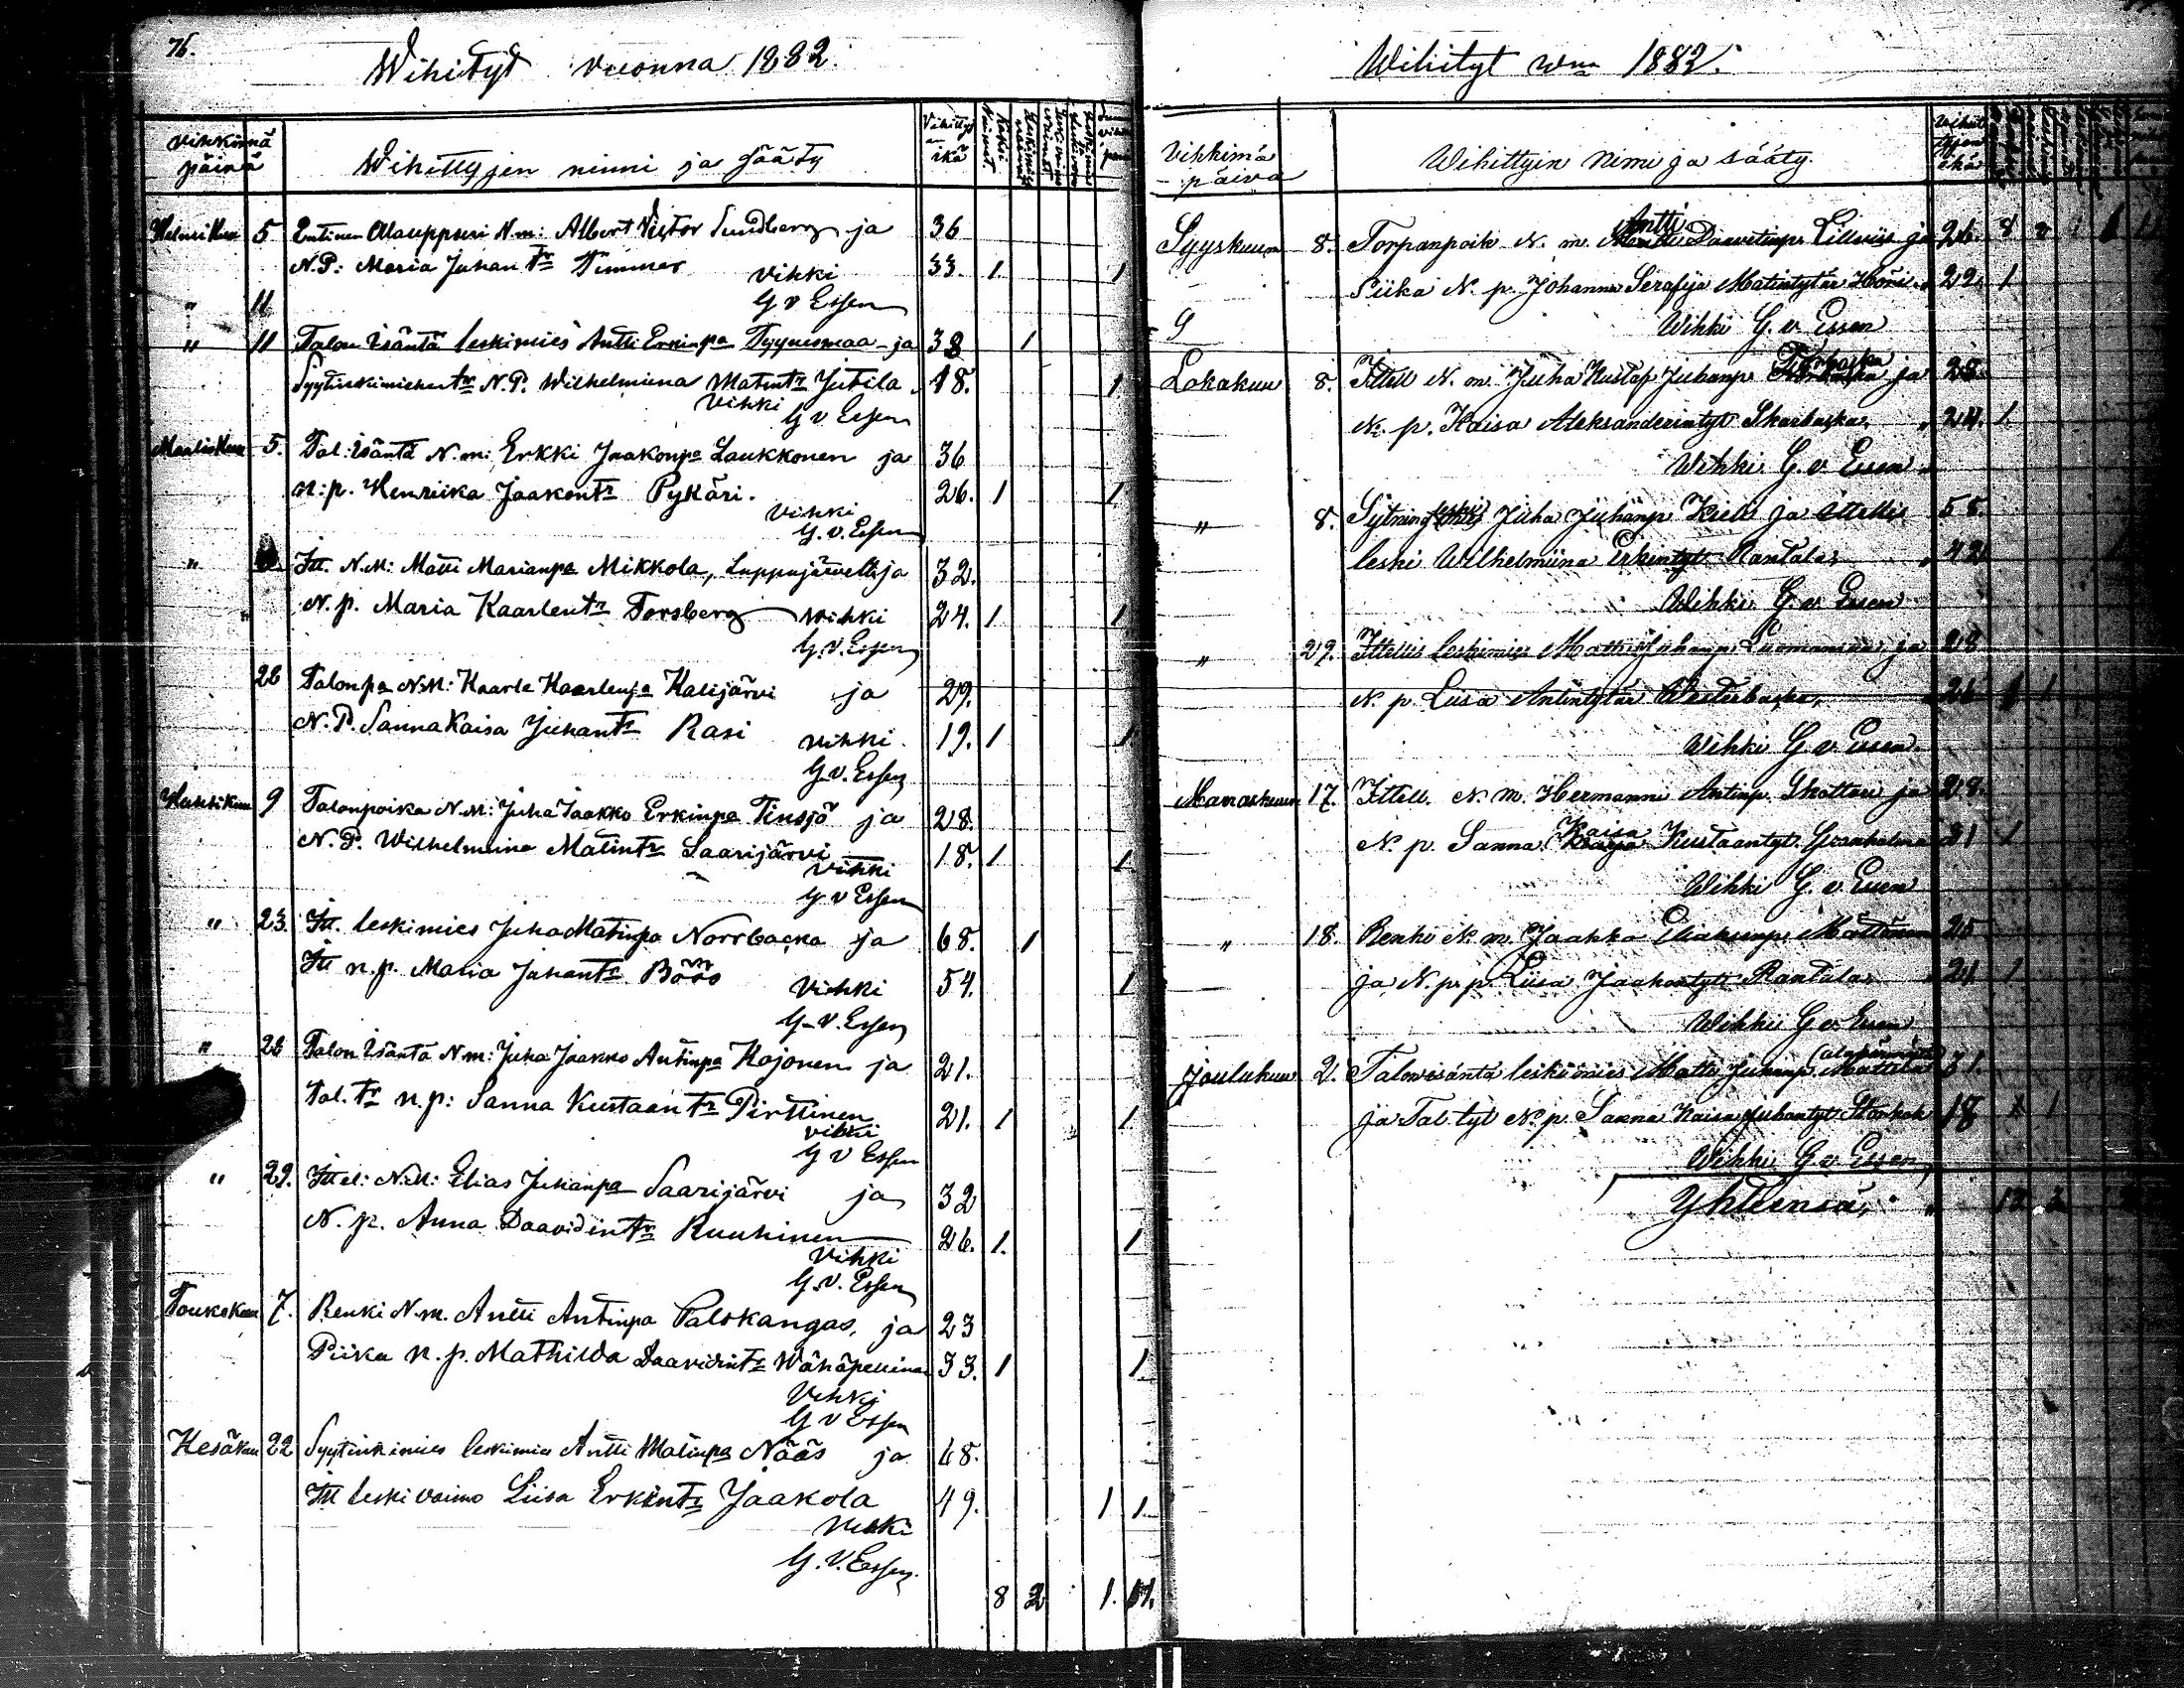 76.
Wihityt vuonna 1882.
vihkimä päivä
Wihittyjen nimi ja sääty
Vihittyjen ikä
Helmikuu 5 Entinen Alauppseri N.m: Albert Victor Sundberg ja 36
N.P: Maria Juhan tr Timmer vihki 33. 1. 1
" 11 G v Essen
" 11 Talon isäntä leskimies Antti Erkinpa Tyynismaa ja 38 1
Syytinkimiehen tr N.P. Wilhelmiina Matintr Jutila 18. 1
vihki
G v Essen
Maaliskuu 5. Tal: isäntä N.m: Erkki Jaakonpa Laukkonen ja 36
n:p. Henriika Jaakontr Pykäri. 26. 1 1
vihki
G. v. Essen
" Itt. N.M: Matti Marianpa Mikkola, Lappajärveltä ja 32.
N. p. Maria Kaarlentr Forsberg vihki 24. 1 1
G. V. Essen
26 Talonpa N.M: Kaarle Kaarlenpa Kalijärvi ja 29.
N. P. Sanna Kaisa Juhantr Rasi vihki 19. 1 1
G. v. Essen
Huhtikuu 9 Talonpoika N.M: Juha Jaakko Erkinpa Tinsjö ja 28.
N. P. Wilhelmiina Matintr Saarijärvi 18. 1 1
vihki
G v Essen
" 23. Itt. leskimies Juha Matinpa Norrbacka ja 68. 1
Itt n.p. Maria Juhantr Böös vihki 54. 1
G. V. Essen
" 26 Talon isäntä N.m: Juha Jaakko Antinpa Kojonen ja 21.
Tal. tr n.p: Sanna Kustaantr Pirttinen 21. 1 1
vihki
G V Essen
" 29. Ittel: N.M: Elias Juhanpa Saarijärvi ja 32
N. p. Anna Daavidintr Ruuhinen 26. 1. 1
vihki
G. V. Essen
Toukokuu 7. Renki N.m. Antti Antinpa Palokangas, ja 23
Piika n. p. Mathilda Daavidintr Wähäpellinen 33. 1 1
Vihki
G v Essen
Kesäkuu 22 Syytinkimies leskimies Antti Matinpa Nääs ja 68.
Itt leskivaimo Liisa Erkintr Jaakola 49. 1 1
vihki
G. V. Essen.
8 2 1. 11.
Wihityt wna 1882.
Vihkimä päivä
Wihittyin nimi ja sääty.
Vihittyjen ikä
Syyskuun 8. Torpanpoik N. m. Antti Daavetinp. Lillviis ja 26. 8 2 1 11
Piika N. p. Johanna Serafija Matintytär 22. 1
9 Wihki G. v. Essen
Lokakuu 8. Ittell N. m. Juha Kustap Juhanp. ja 28.
N. p. Kaisa Aleksanderintyt 24. 1.
Wihki G. v. Essen
" 8. Sytning leski Juha Juhanp Kieli ja ittellis 58.
leski Wilhelmiina Erkintyt Rantala, 42
Wihki G. v. Essen
" 29. Ittellis leskimies Matti Juhanp. Luomanmäki ja 28
N. p. Liisa Antintytär Westerbacka, 26 1 1
Wihki G. v. Essen
Marraskuun 17. Ittell. N. m. Hermanni Antinp. Skottari ja 28.
N. p. Sanna Kaisa Kustaantyt. Granholm 21 1
Wihki G. v. Essen
" 18. Renki N. m. Jaakko Eliakunp. Määttänen 25
ja N. p. p. Liisa Jaakontyt Rantala, 24 1
Wihki G. v. Essen
Joulukuu 2. Talonisäntä leskimies Matti Juhanp. Mattila 31.
ja Tal. tyt N. p. Sanna Kaisa Juhantyt 18 1 1
Wihki G. v. Essen
Yhteensä, 12 2